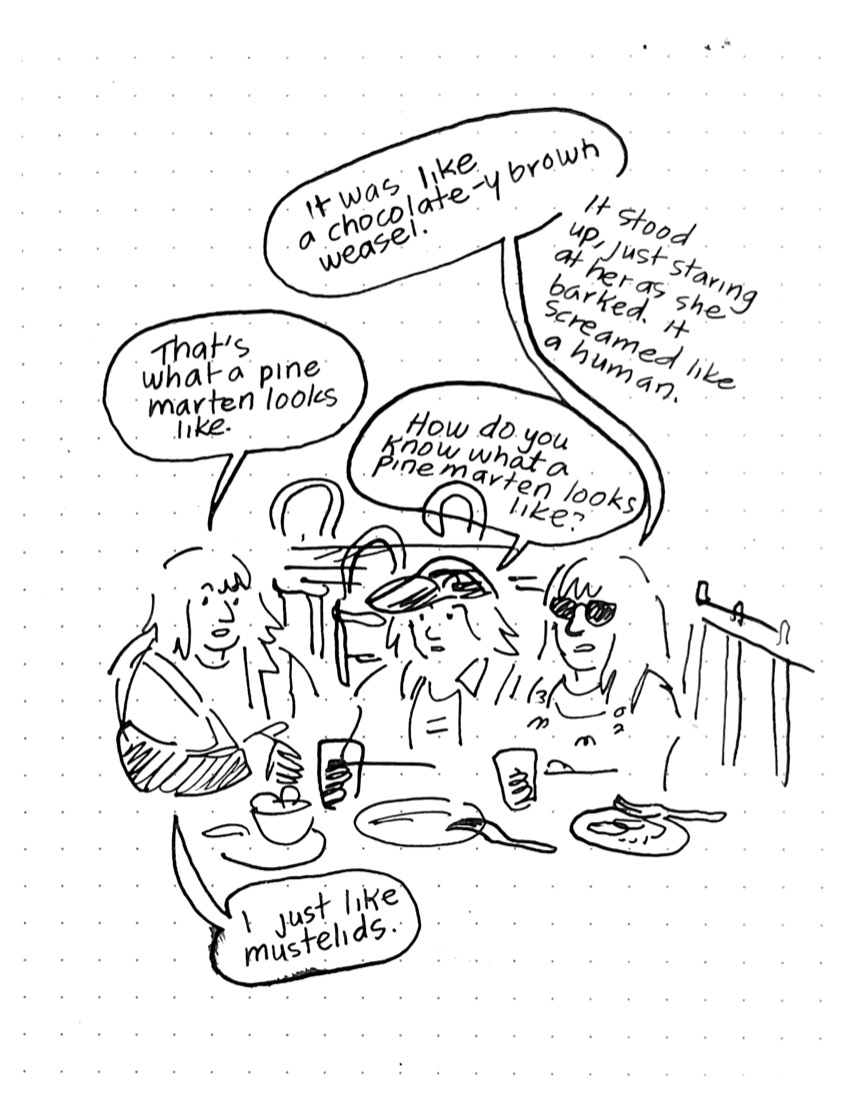 It was like
a chocolate-y brown
weasel.
It stood
up, just staring
at her as she
barked. It
screamed like
a human.
That's
what a pine
marten looks
like.
How do you
know what a
pine marten looks
like?
I just like
mustelids.